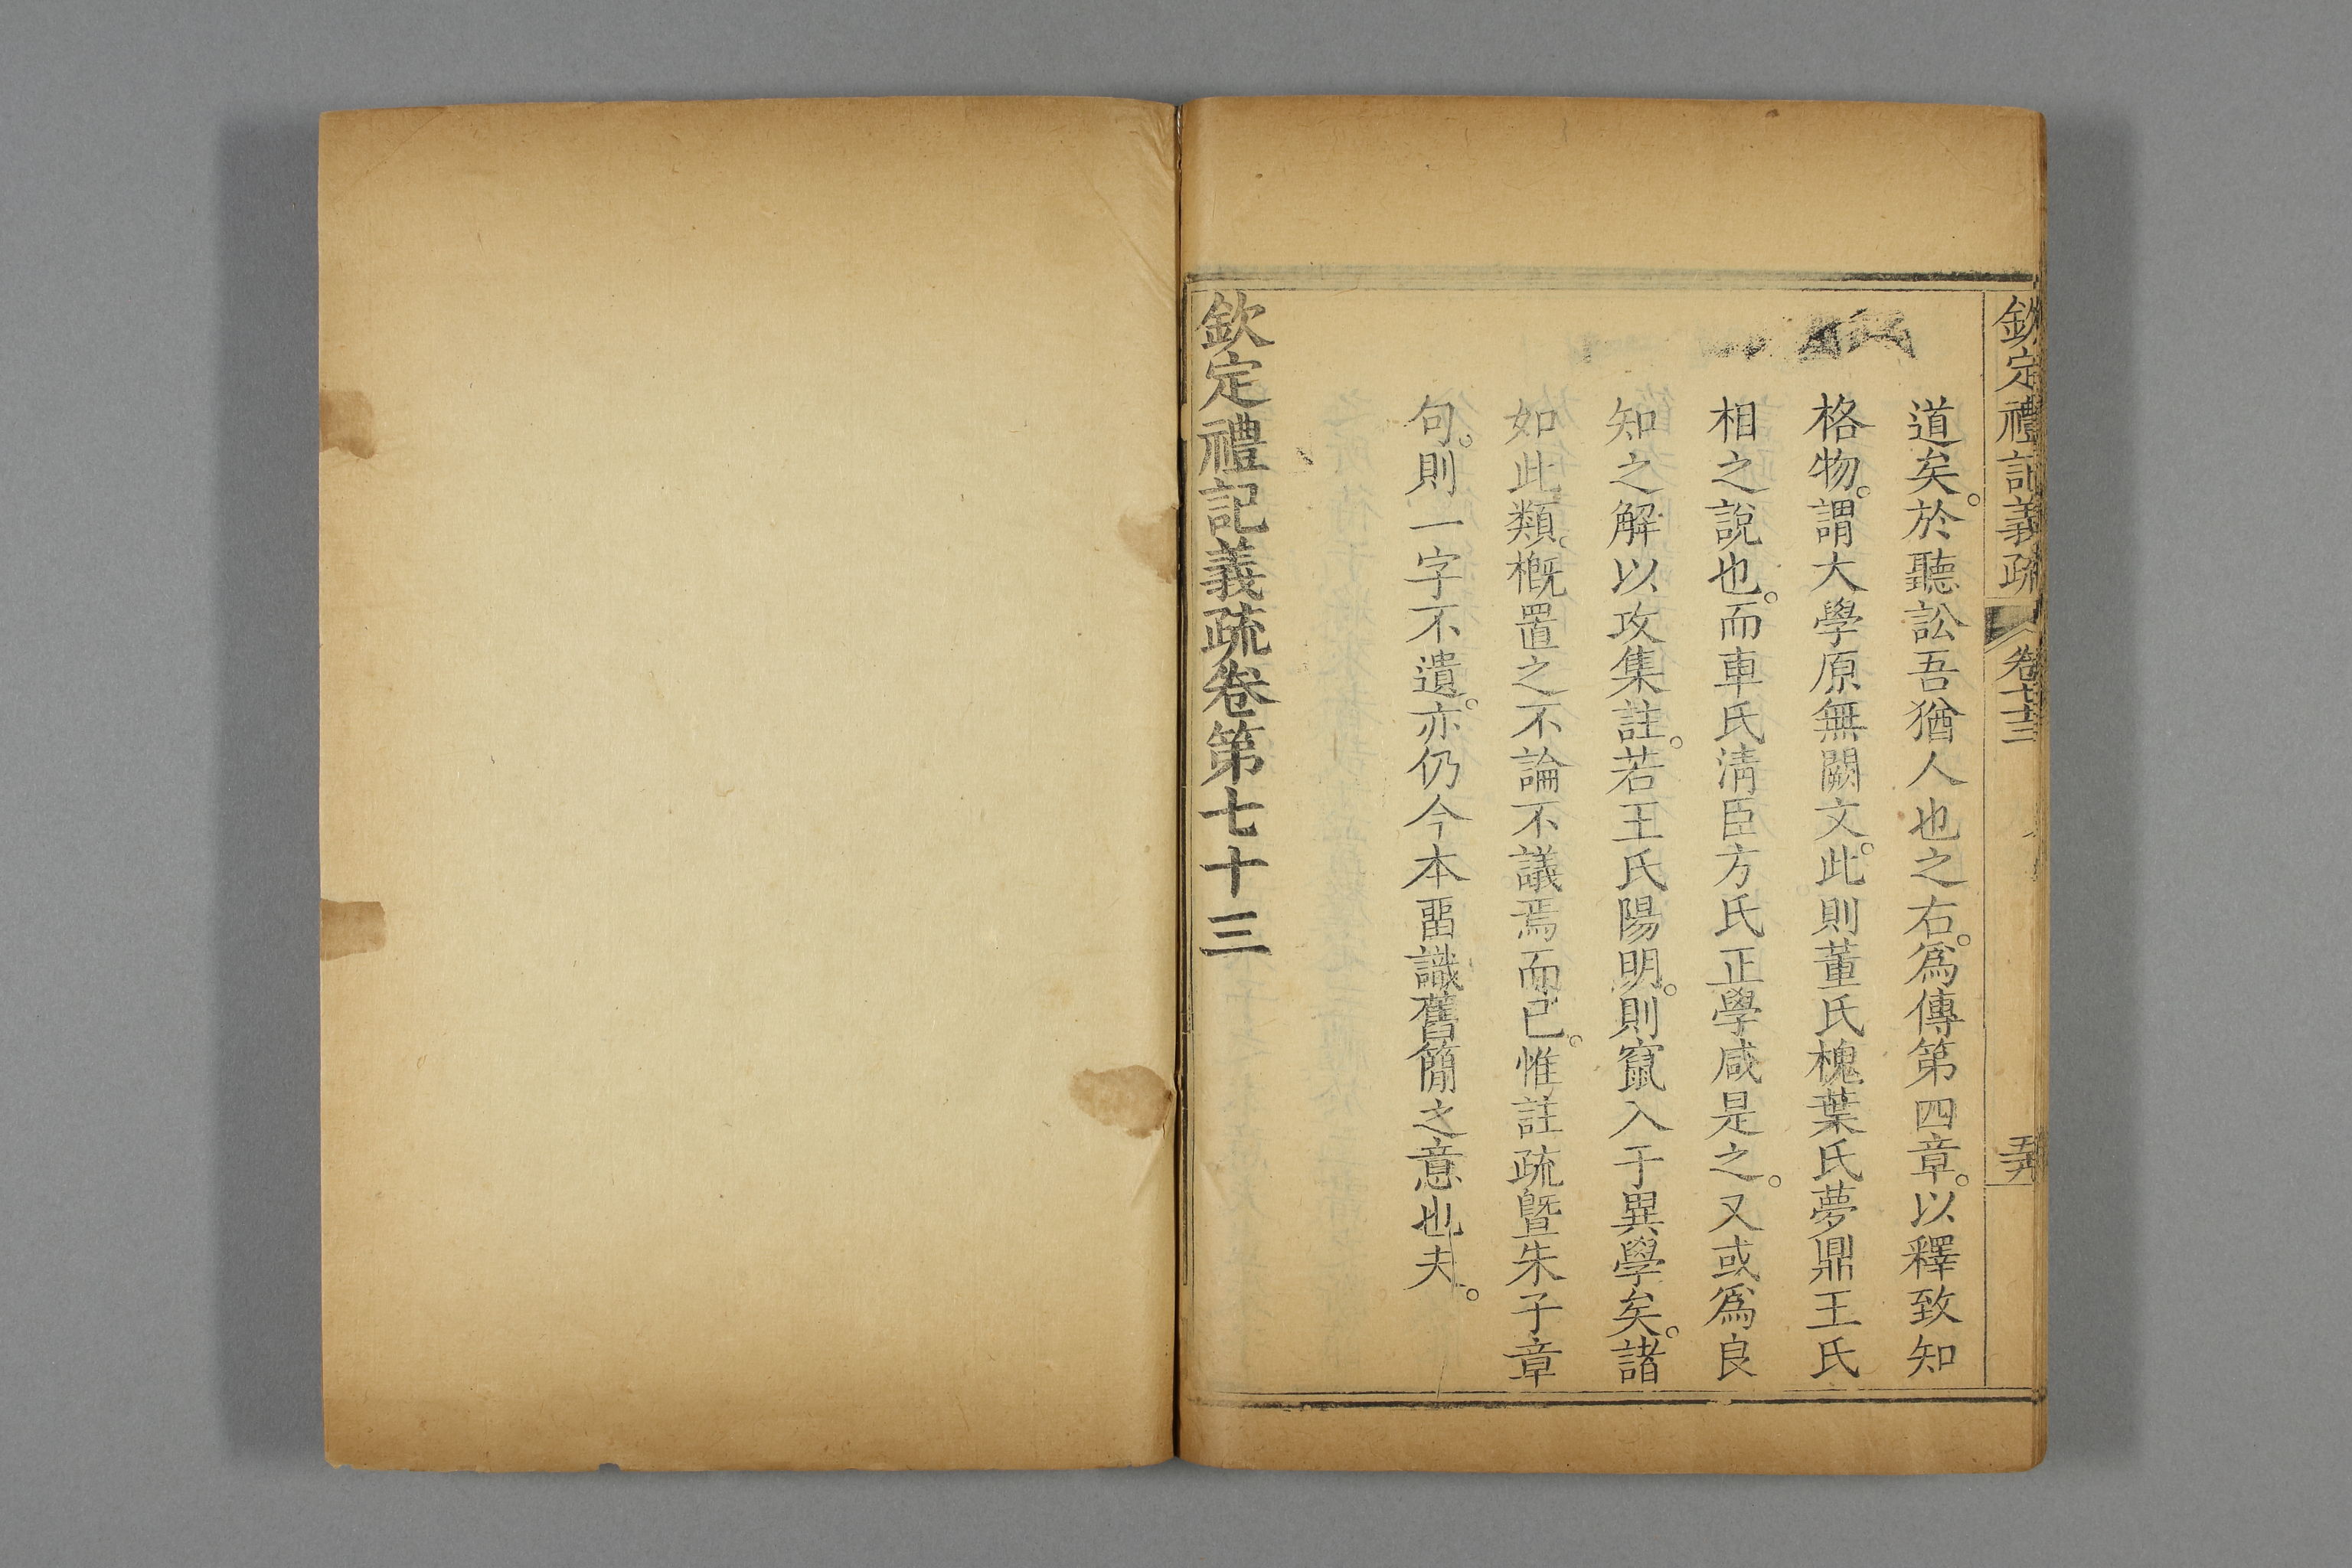 欽定禮記義疏 卷七十三
道矣。於聽訟吾猶人也之右。爲傳第四章。以釋致知
格物。謂大學原無闕文。此則董氏槐葉氏夢鼎王氏
相之說也。而車氏淸臣方氏正學咸是之。又或爲良
知之解以攻集註。若王氏陽明。則竄入于異學矣。諸
如此類。槪置之不論不議焉而已。惟註疏曁朱子章
句。則一字不遺。亦仍今本畱識舊簡之意也夫。
欽定禮記義疏卷第七十三